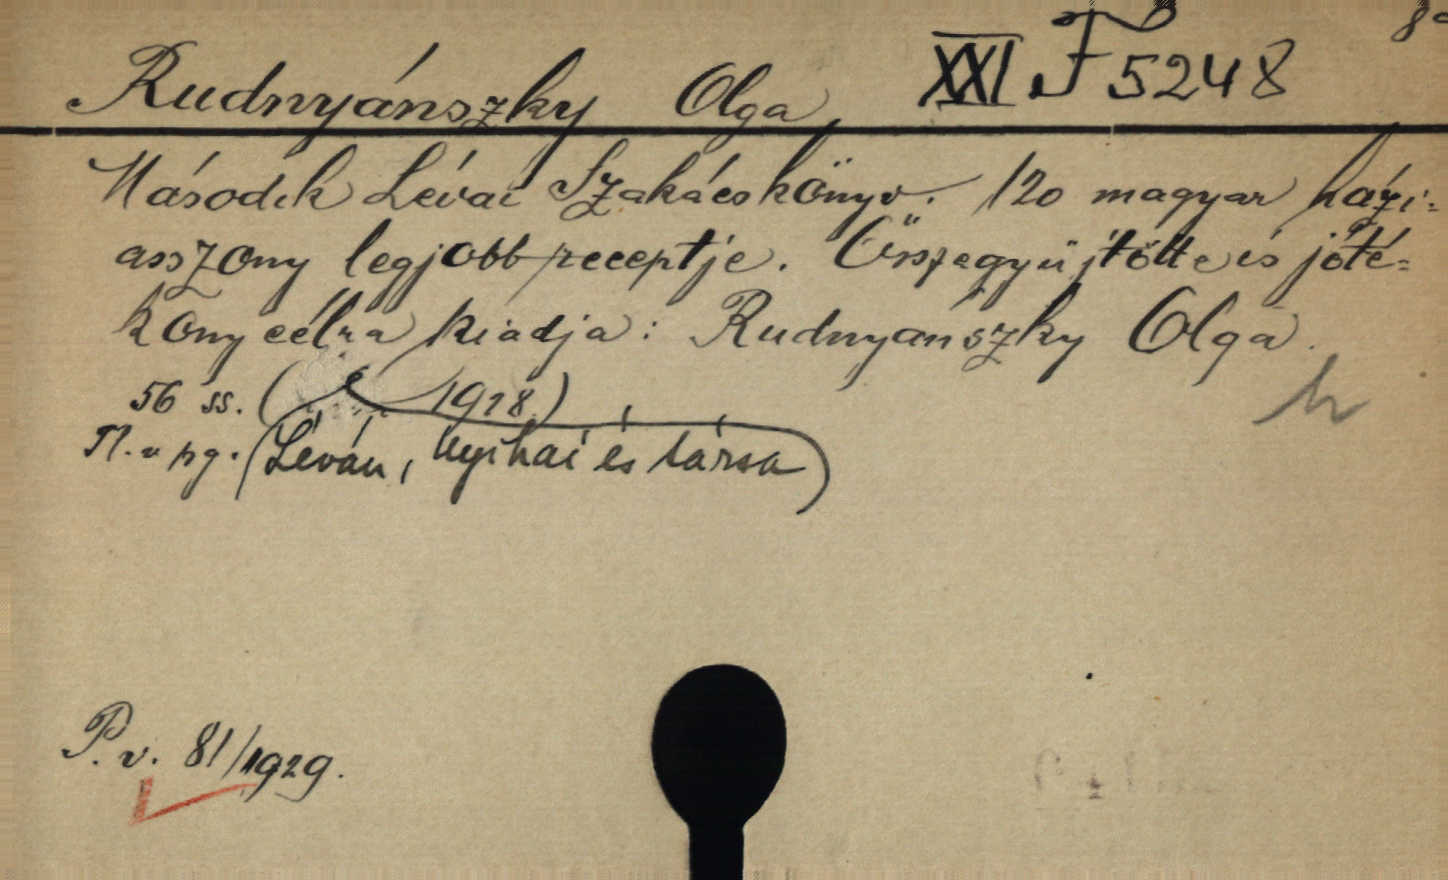 8°
Rudnyánszky Olga XXI F 5248
Második Lévai Szakácskönyv. 120 magyar házi=
asszony legjobb receptje. Összegyüjtötte és jóté=
kony célra kiadja: Rudnyánszky Olga.
56 ss. ( 1928)
(Léván, Nyihai és társa)
P. v. 81/1929.